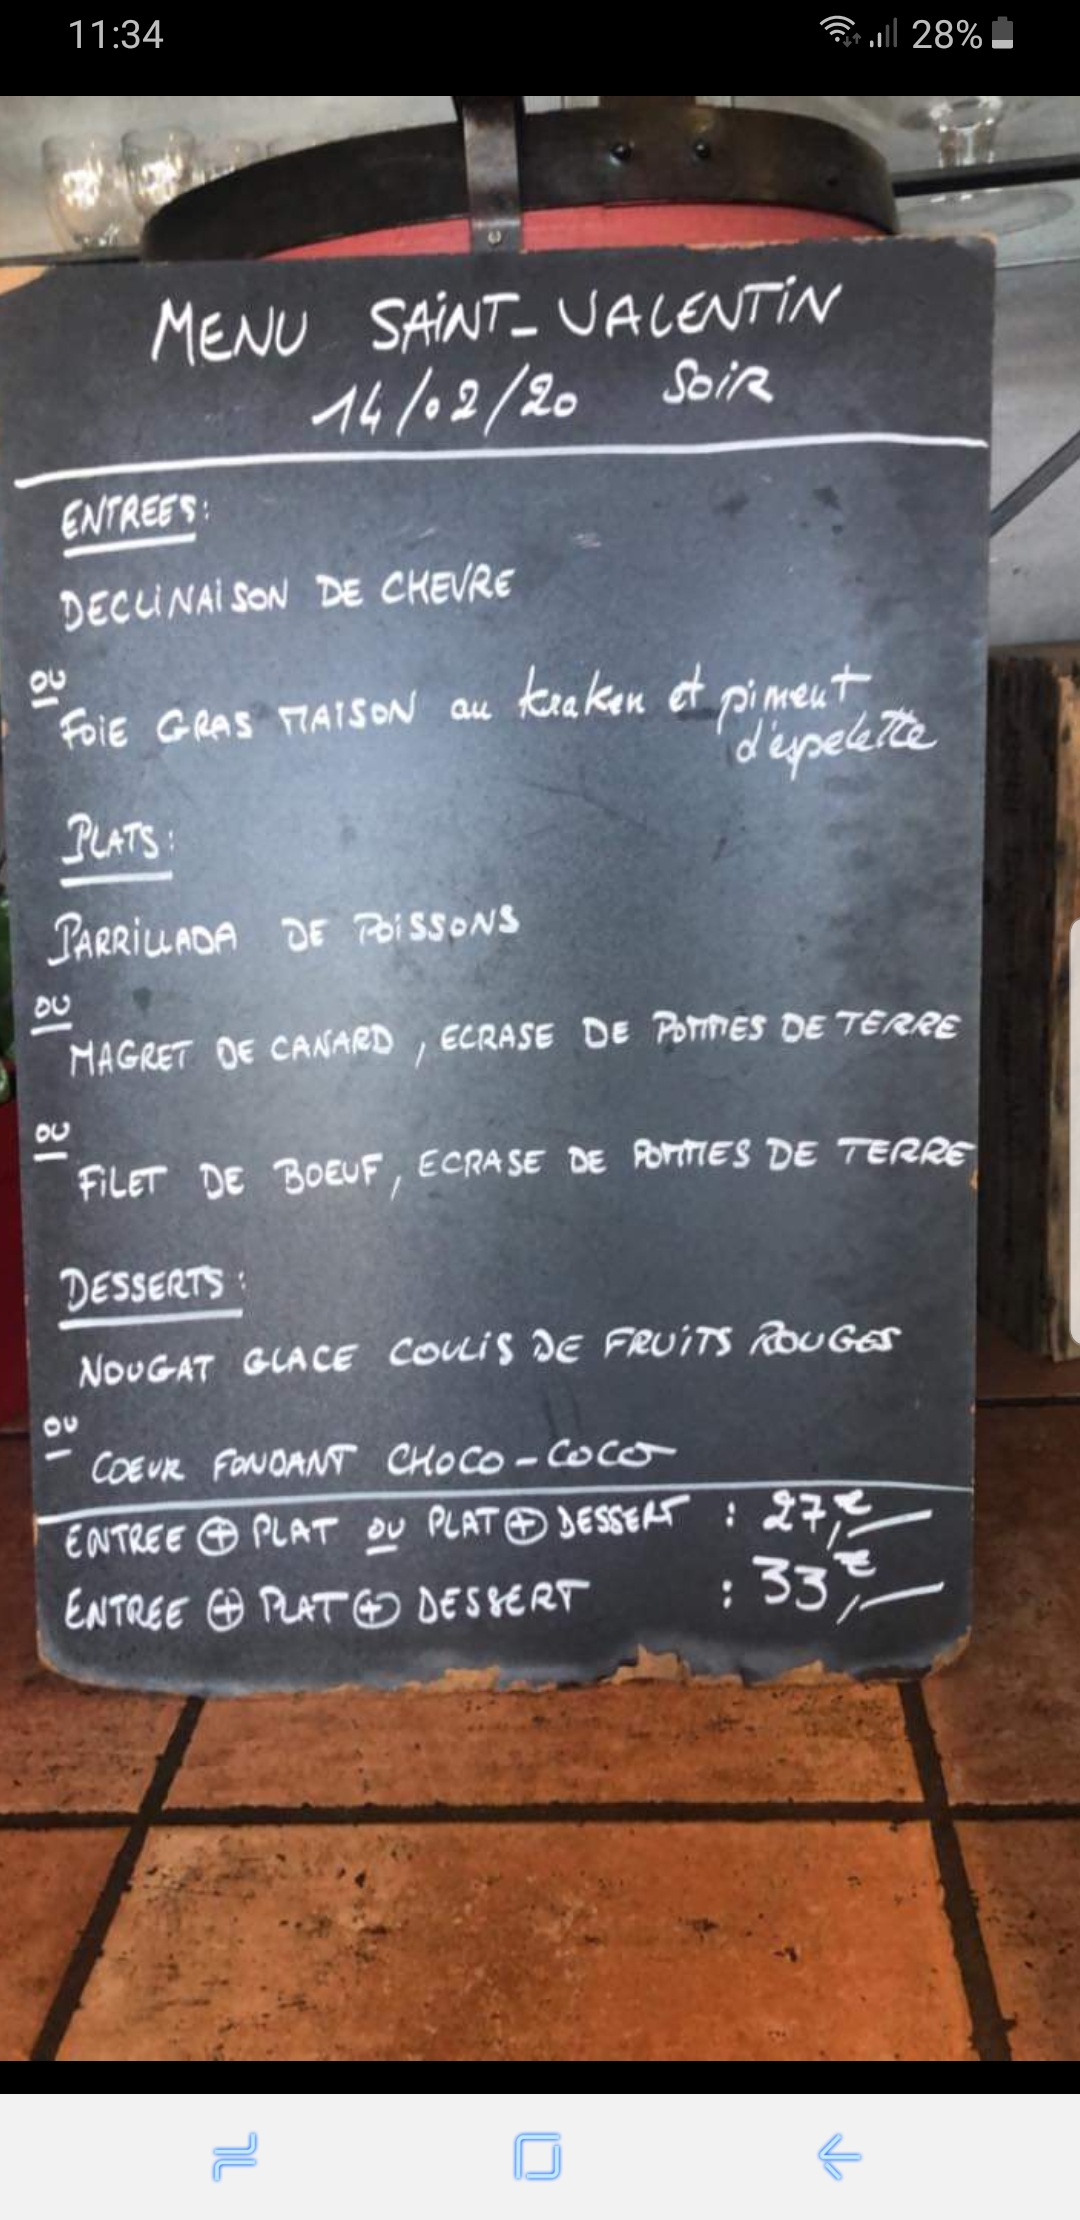 11:34
28%
MENU SAINT-VALENTIN
14/02/20 SOIR
ENTREES:
DECLINAISON DE CHEVRE
OU
FOIE GRAS MAISON au kraken et piment
d'espelette
PLATS:
PARRILLADA DE POISSONS
OU
MAGRET DE CANARD, ECRASE DE POMMES DE TERRE
OU
FILET DE BOEUF, ECRASE DE POMMES DE TERRE
DESSERTS:
NOUGAT GLACE COULIS DE FRUITS ROUGES
OU
COEUR FONDANT CHOCO-COCO
ENTREE + PLAT OU PLAT + DESSERT : 27,€—
ENTREE + PLAT + DESSERT : 33,€—